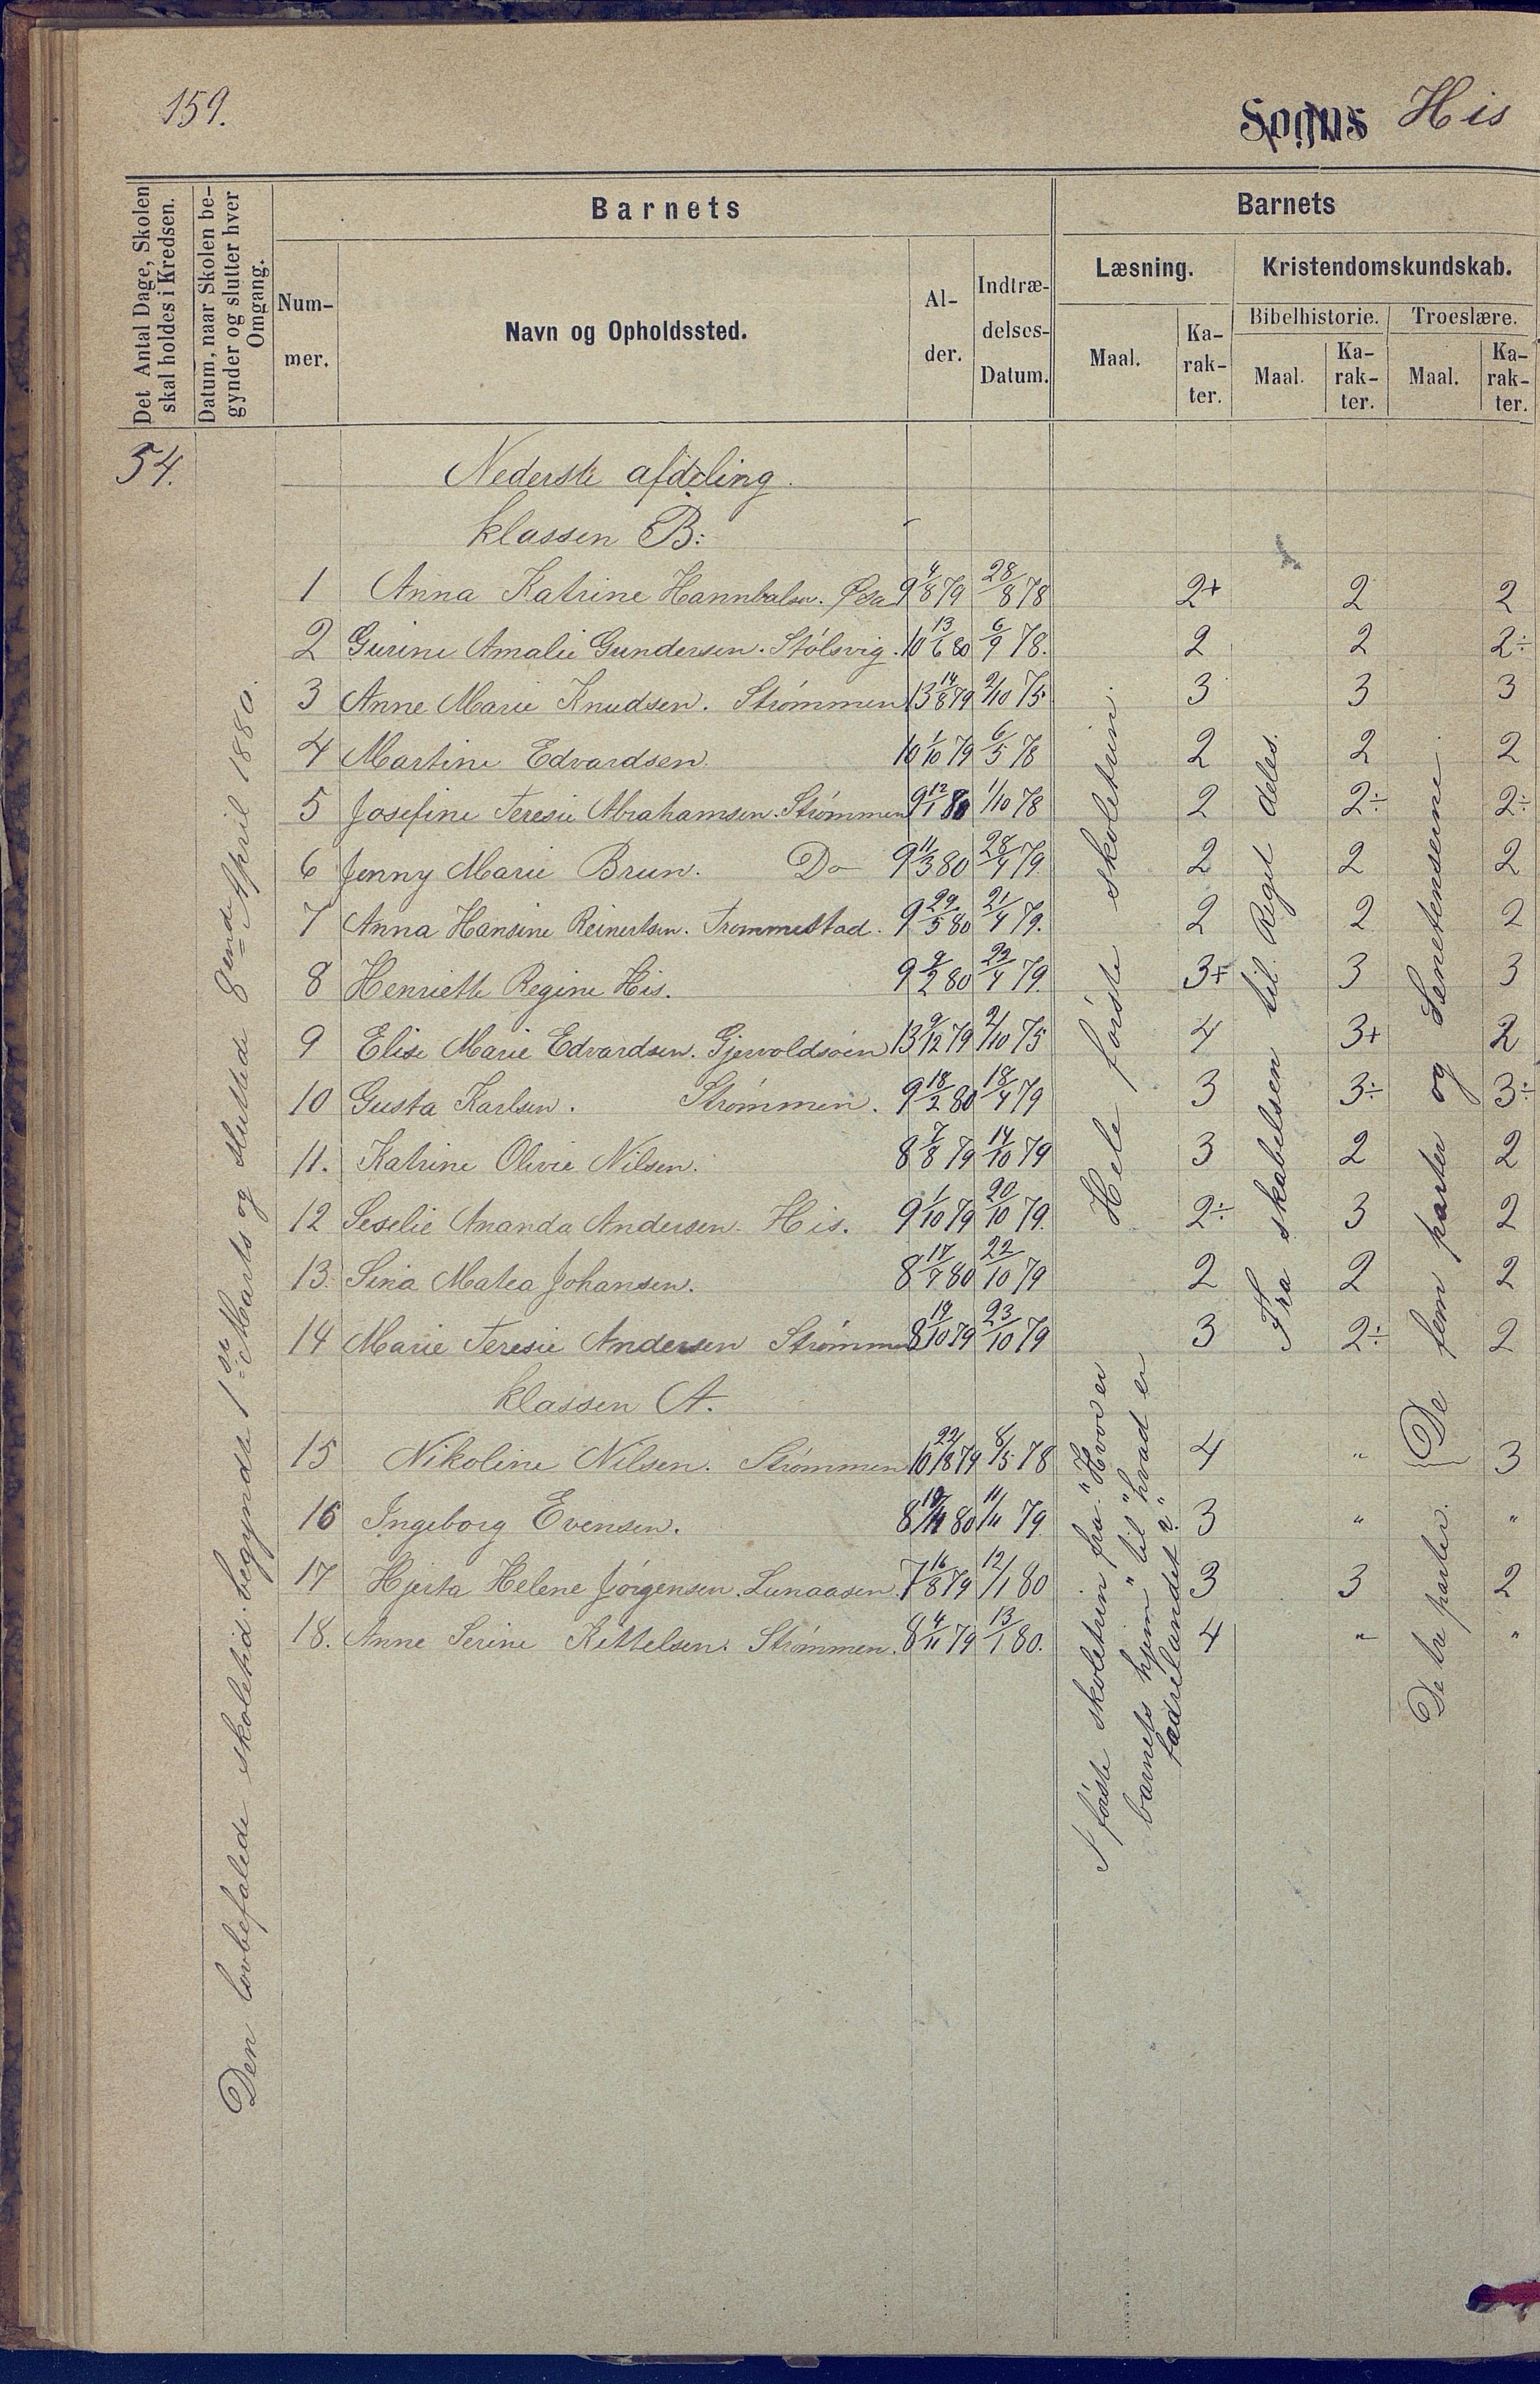 159.
Sogns His
Det Antal Dage, Skolen skal holdes i Kredsen.
Datum, naar Skolen begynder og slutter hver Omgang.
Barnets
Nummer.
Navn og Opholdssted.
Alder.
Indtrædelses-Datum.
Barnets
Læsning.
Kristendomskundskab.
Maal.
Karakter.
Bibelhistorie.
Troeslære.
Maal.
Karakter.
Maal.
Karakter.
54.
Den lovbefalede skoletid begyndte 1ste Marts og sluttede 8ende April 1880.
Nederste afdeling.
klassen B:
1 Anna Katrine Hannbalsen. 9 4/8 79 28/8 78 2+ 2 2
2 Gurine Amalie Gundersen. Stólsvig. 10 13/6 80 6/9 78. 2 2 2÷
3 Anne Marie Knudsen. Strømmen 13 14/8 79 2/10 75 3 3 3
4 Martine Edvardsen. 10 1/10 79 6/5 78 2 2 2
5 Josefine Teresie Abrahamsen. Strømmen 9 12/1 80 1/10 78 2 2÷ 2÷
6 Jenny Marie Brun. Do 9 11/3 80 28/4 79. 2 2 2
7 Anna Hansine Reinertsen. Trommestad. 9 29/5 80 21/4 79. 2 2 2
8 Henriette Regine His. 9 9/2 80 23/4 79. 3+ 3 3
9 Elise Marie Edvardsen. Gjervoldsøen 13 9/12 79 2/10 75 4 3+ 2
10 Gusta Karlsen. Strømmen. 9 18/2 80 18/4 79 3 3÷ 3÷
11. Katrine Olivie Nilsen. 8 7/8 79 14/10 79 3 2 2
12 Seselie Amanda Andersen. His. 9 1/10 79 20/10 79. 2÷ 3 2
13. Sina Matea Johansen. 8 17/7 80 22/10 79 2 2 2
14 Marie Teresie Andersen Strømmen 8 19/10 79 23/10 79 3 2÷ 2
klassen A.
15 Nikoline Nilsen. Strømmen 10 22/8 79 8/5 78 4 " 3
16 Ingeborg Evensen. 8 80 11/11 79. 3 " "
17 Hjerta Helene Jörgensen. Lunaasen. 7 16/8 79 12/1 80 3 3 2
18. Anne Serine Kittelsen. Strømmen. 8 4/11 79 13/1 80. 4 " "
Hele første skoletrin.
I første skoletrin fra "Hvor er
barnets hjem" til "hvad er
fædrelandet?"
Fra skabelsen til Riget deles.
De fem parter og Senetenserne.
De tre parter.